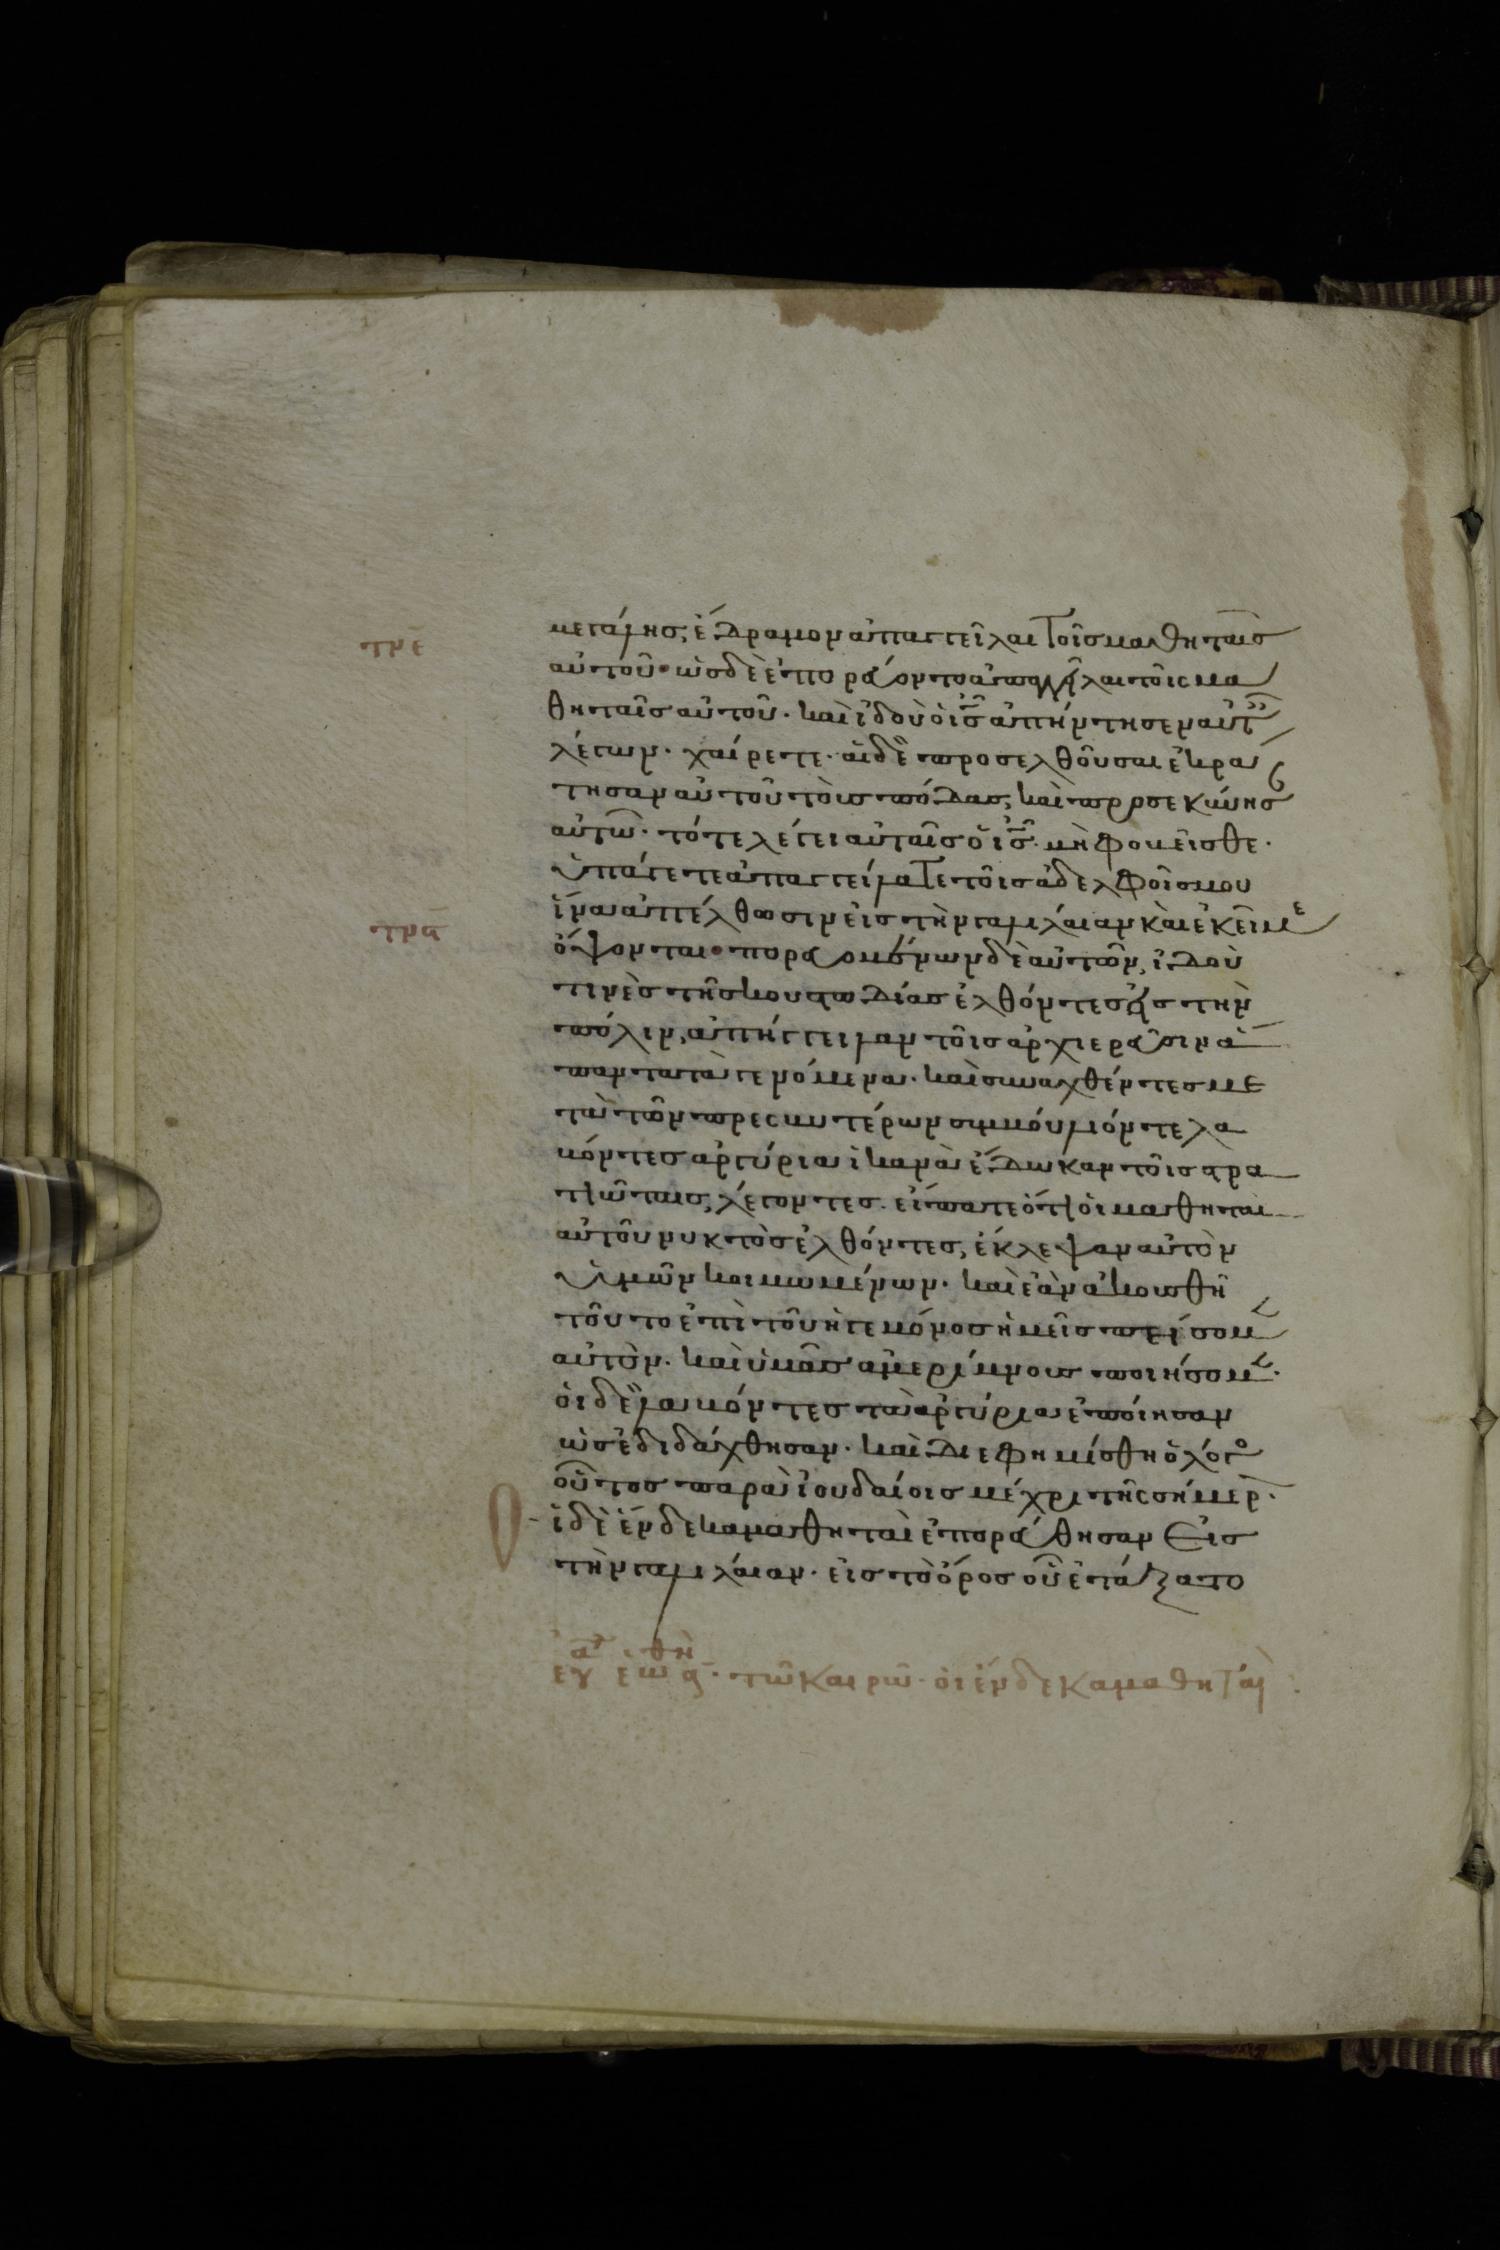 μεγάλης, ἔδραμον ἀπαγγεῖλαι τοῖς μαθηταῖς
τνε
αὐτοῦ· ὡς δὲ ἐπορεύοντο ἀπαγγεῖλαι τοῖς μα
θηταῖς αὐτοῦ· καὶ ἰδοὺ ὁ ις ἀπήντησεν αὐτ
λέγων· χαίρετε· αἱ δὲ προσελθοῦσαι ἐκρα
τησαν αὐτοῦ τοὺς πόδας, καὶ προσεκύνησ
αὐτῶ· τότε λέγει αὐταῖς ὁ ις· μὴ φοβεῖσθε·
ὑπάγετε ἀπαγγείλατε τοῖς ἀδελφοῖς μου
ἵνα ἀπέλθωσιν εἰς τὴν γαλιλαίαν κἀκεῖ με
ὄψονται· πορευομένων δὲ αὐτῶν, ἰδού
τινὲς τῆς κουστωδίας ἐλθόντες εἰς τὴν
πόλιν, ἀπήγγειλαν τοῖς ἀρχιερεῦσιν ἁ
παντα τὰ γενόμενα· καὶ συναχθέντες με
τὰ τῶν πρεσβυτέρων συμβούλιόν τε λα
βόντες ἀργύρια ἱκανὰ ἔδωκαν τοῖς στρα
τιώταις, λέγοντες· εἴπατε ὅτι οἱ μαθηταὶ
αὐτοῦ νυκτὸς ἐλθόντες, ἔκλεψαν αὐτὸν
ἡμῶν κοιμωμένων· καὶ ἐὰν ἀκουσθῆ
τοῦτο ἐπὶ τοῦ ἡγεμόνος ἡμεῖς πείσομ
αὐτόν· καὶ ὑμᾶς ἀμερίμνους ποιήσομ·
οἱ δὲ λαβόντες τὰ ἀργύρια ἐποίησαν
ὡς ἐδιδάχθησαν· καὶ διεφημίσθη ὁ λόγο
οὗτος παρὰ ἰουδαίοις μέχρι τῆς σήμερ·
Οἱ δὲ ἕνδεκα μαθηταὶ ἐπορεύθησαν εἰς
τὴν γαλιλαίαν· εἰς τὸ ὄρος οὗ ἐτάξατο
τῶ καιρῶ· οἱ ἕνδεκα μαθηταί :